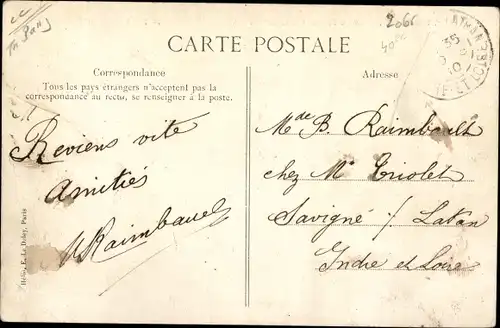 2066
40
CARTE POSTALE
Correspondance
Tous les pays étrangers n'acceptent pas la
correspondance au recto, se renseigner à la poste.
Reviens vite
Amitiés
Raimbault
Adresse
Mde B. Raimbault
chez Mr Triolet
Savigné s/ Latan
Indre et Loire